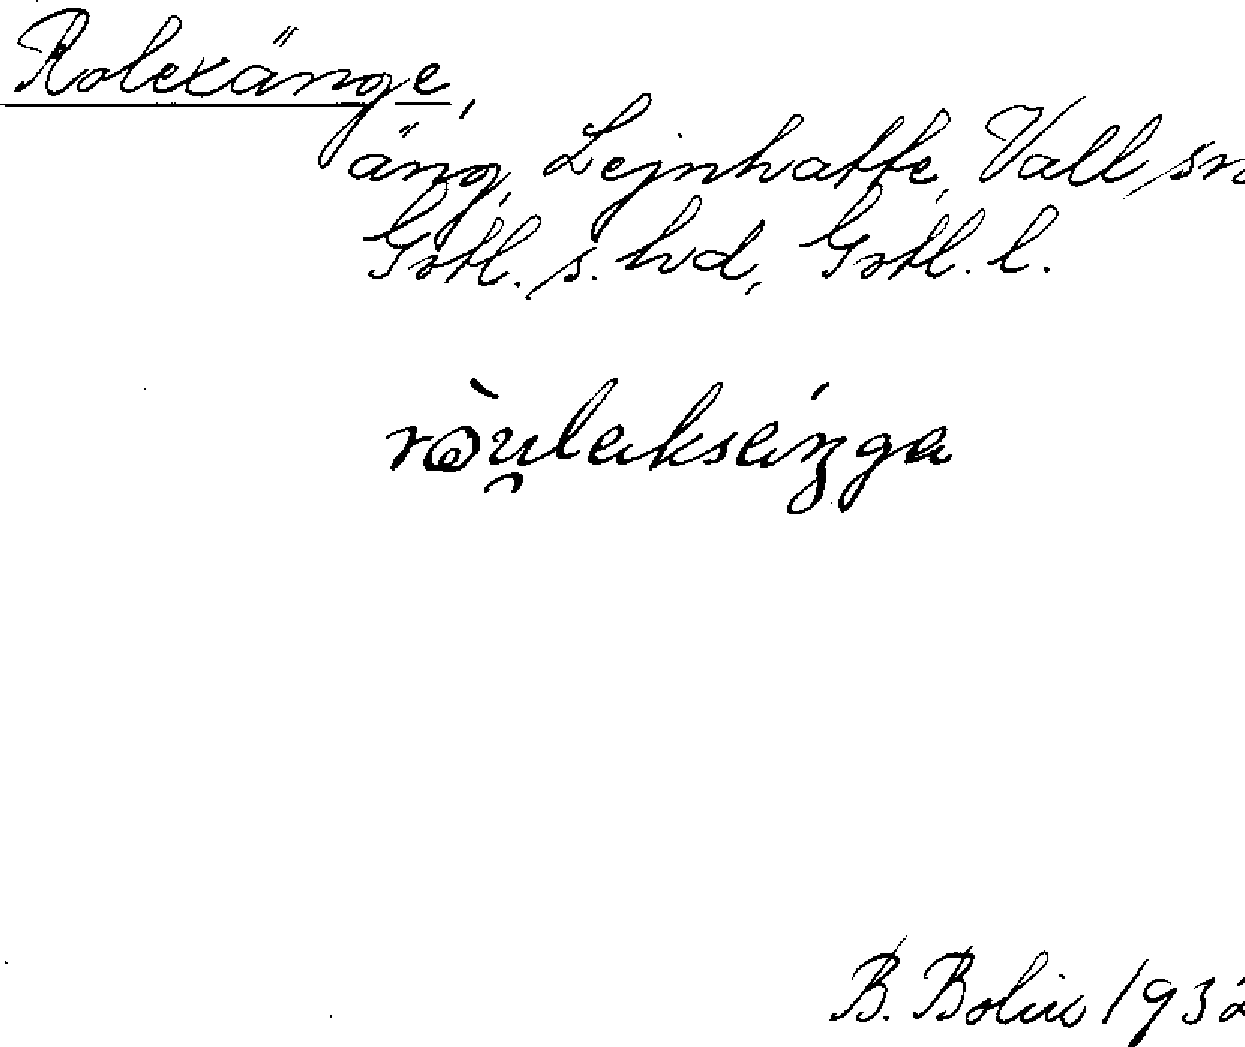 Rolexänge,
äng, Lejnhatte, Vall sn
Gotl. s. hd, Gotl. l.
rò̱u̯laksánga
B. Bolin 1932